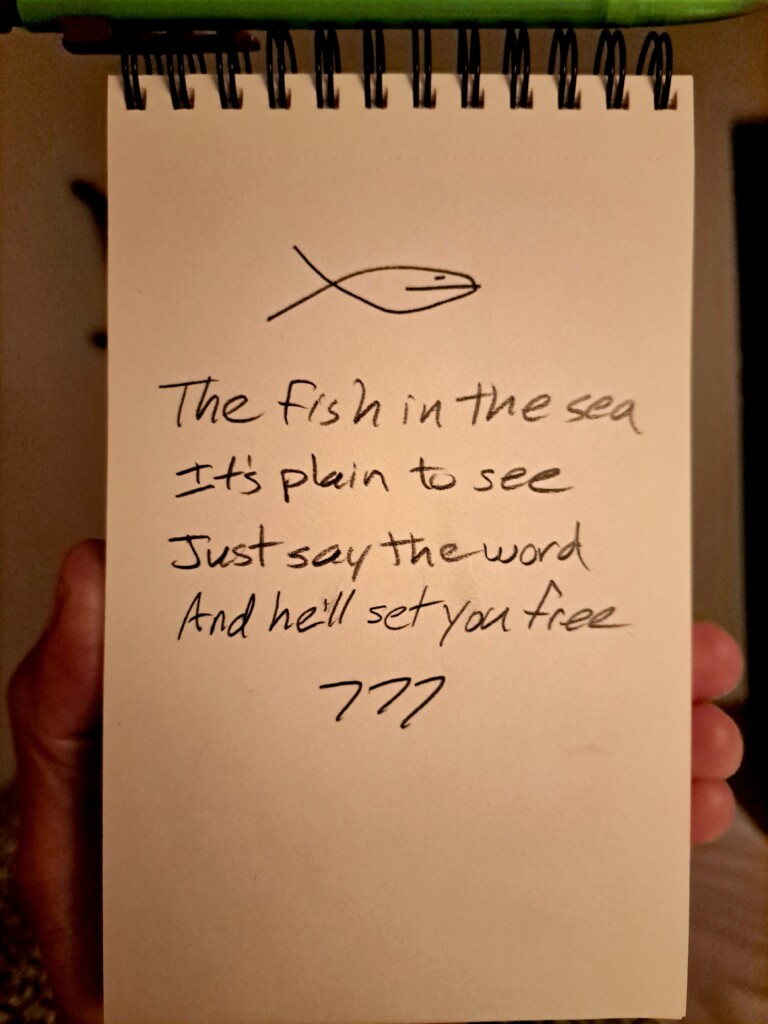 The fish in the sea
It's plain to see
Just say the word
And he'll set you free
777